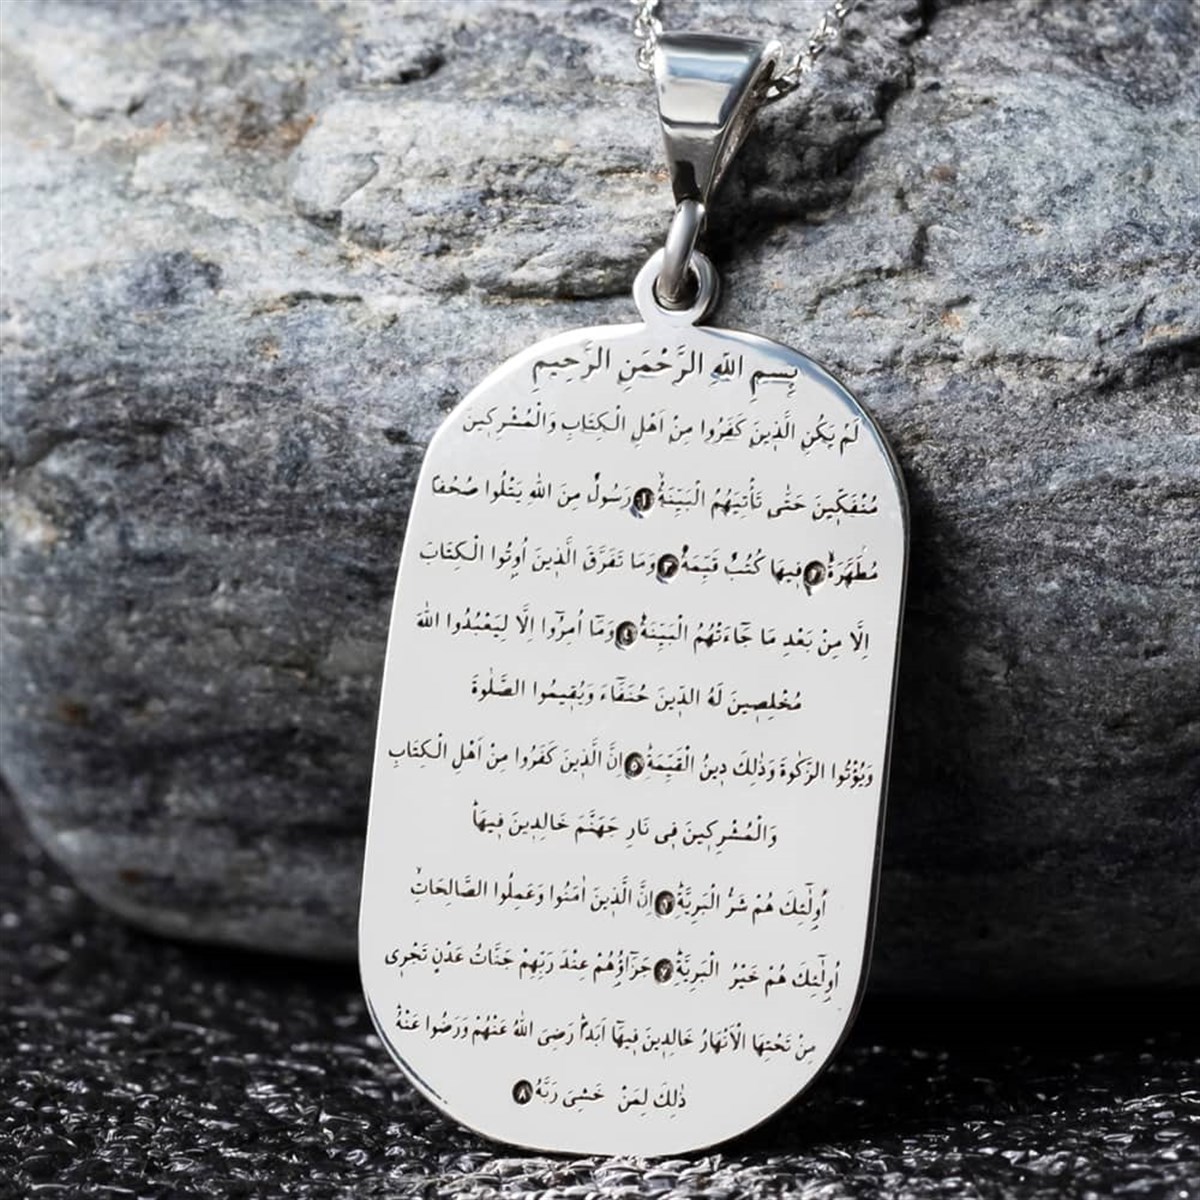 بِسمِ اللّٰهِ الرَّحْمَنِ الرَّحِيمِ
لَمْ يَكُنِ الَّذٖينَ كَفَرُوا مِنْ اَهْلِ الْكِتَابِ وَالْمُشْرِكٖينَ
مُنْفَكّٖينَ حَتّٰى تَأْتِيَهُمُ الْبَيِّنَةُۙ ١ رَسُولٌ مِنَ اللّٰهِ يَتْلُوا صُحُفًا
مُطَهَّرَةًۙ ٢ فٖيهَا كُتُبٌ قَيِّمَةٌؕ ٣ وَمَا تَفَرَّقَ الَّذٖينَ اُوتُوا الْكِتَابَ
اِلَّا مِنْ بَعْدِ مَا جَٓاءَتْهُمُ الْبَيِّنَةُؕ ٤ وَمَٓا اُمِرُٓوا اِلَّا لِيَعْبُدُوا اللّٰهَ
مُخْلِصٖينَ لَهُ الدّٖينَ حُنَفَٓاءَ وَيُقٖيمُوا الصَّلٰوةَ
وَيُؤْتُوا الزَّكٰوةَ وَذٰلِكَ دٖينُ الْقَيِّمَةِؕ ٥ اِنَّ الَّذٖينَ كَفَرُوا مِنْ اَهْلِ الْكِتَابِ
وَالْمُشْرِكٖينَ فٖى نَارِ جَهَنَّمَ خَالِدٖينَ فٖيهَاؕ
اُولٰٓئِكَ هُمْ شَرُّ الْبَرِيَّةِؕ ٦ اِنَّ الَّذٖينَ اٰمَنُوا وَعَمِلُوا الصَّالِحَاتِۙ
اُولٰٓئِكَ هُمْ خَيْرُ الْبَرِيَّةِؕ ٧ جَزَٓاؤُهُمْ عِنْدَ رَبِّهِمْ جَنَّاتُ عَدْنٍ تَجْرٖى
مِنْ تَحْتِهَا الْاَنْهَارُ خَالِدٖينَ فٖيهَٓا اَبَدًاؕ رَضِىَ اللّٰهُ عَنْهُمْ وَرَضُوا عَنْهُؕ
ذٰلِكَ لِمَنْ خَشِىَ رَبَّهُ ٨